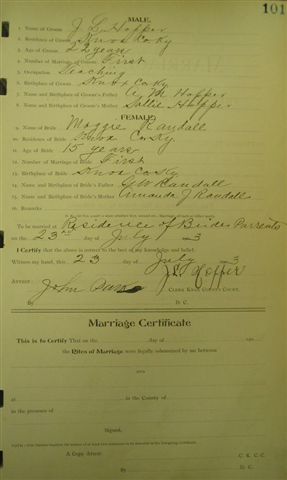 101
MALE.
1. Name of Groom J L Hopper
2. Residence of Groom Knox Co Ky
3. Age of Groom 22 years
4. Number of Marriage of Groom First
5. Occupation Teaching
6. Birthplace of Groom Knox Co Ky
7. Name and Birthplace of Groom's Father Hopper
8. Name and Birthplace of Groom's Mother Sallie Hopper
FEMALE.
9. Name of Bride Maggie Randall
10. Residence of Bride Knox Co Ky
11. Age of Bride 15 years
12. Number of Marriage of Bride First
13. Birthplace of Bride Knox Co Ky
14. Name and Birthplace of Bride's Father Randall
15. Name and Birthplace of Bride's Mother Amanda J Randall
16. Remarks
To be married at Residence of Brides Parrents
on the 23rd day of July 3
I Certify that the above is correct to the best of my knowledge and belief.
Witness my hand, this 23 day of July 3
J L Hopper
Attest: John Clerk Knox County Court.
By D. C.
Marriage Certificate
This is to Certify That on the day of
the Rites of Marriage were legally solemnized by me between
and
at in the County of
in the presence of
Signed,
A Copy Attest: C. K. C. C.
By D. C.